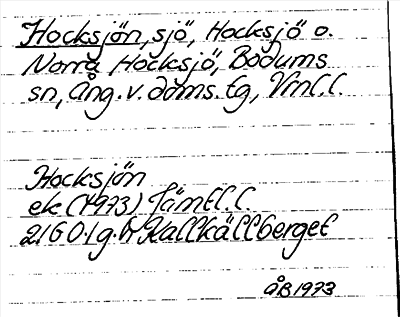 Hocksjön, sjö, Hocksjö o.
Norra Hocksjö, Bodums
sn, Ång. v. doms. tg, Vrnl. l.
Hocksjön
ek (1973) Jämtl. l.
21601 g. h Kallkällberget
ÅB 1973